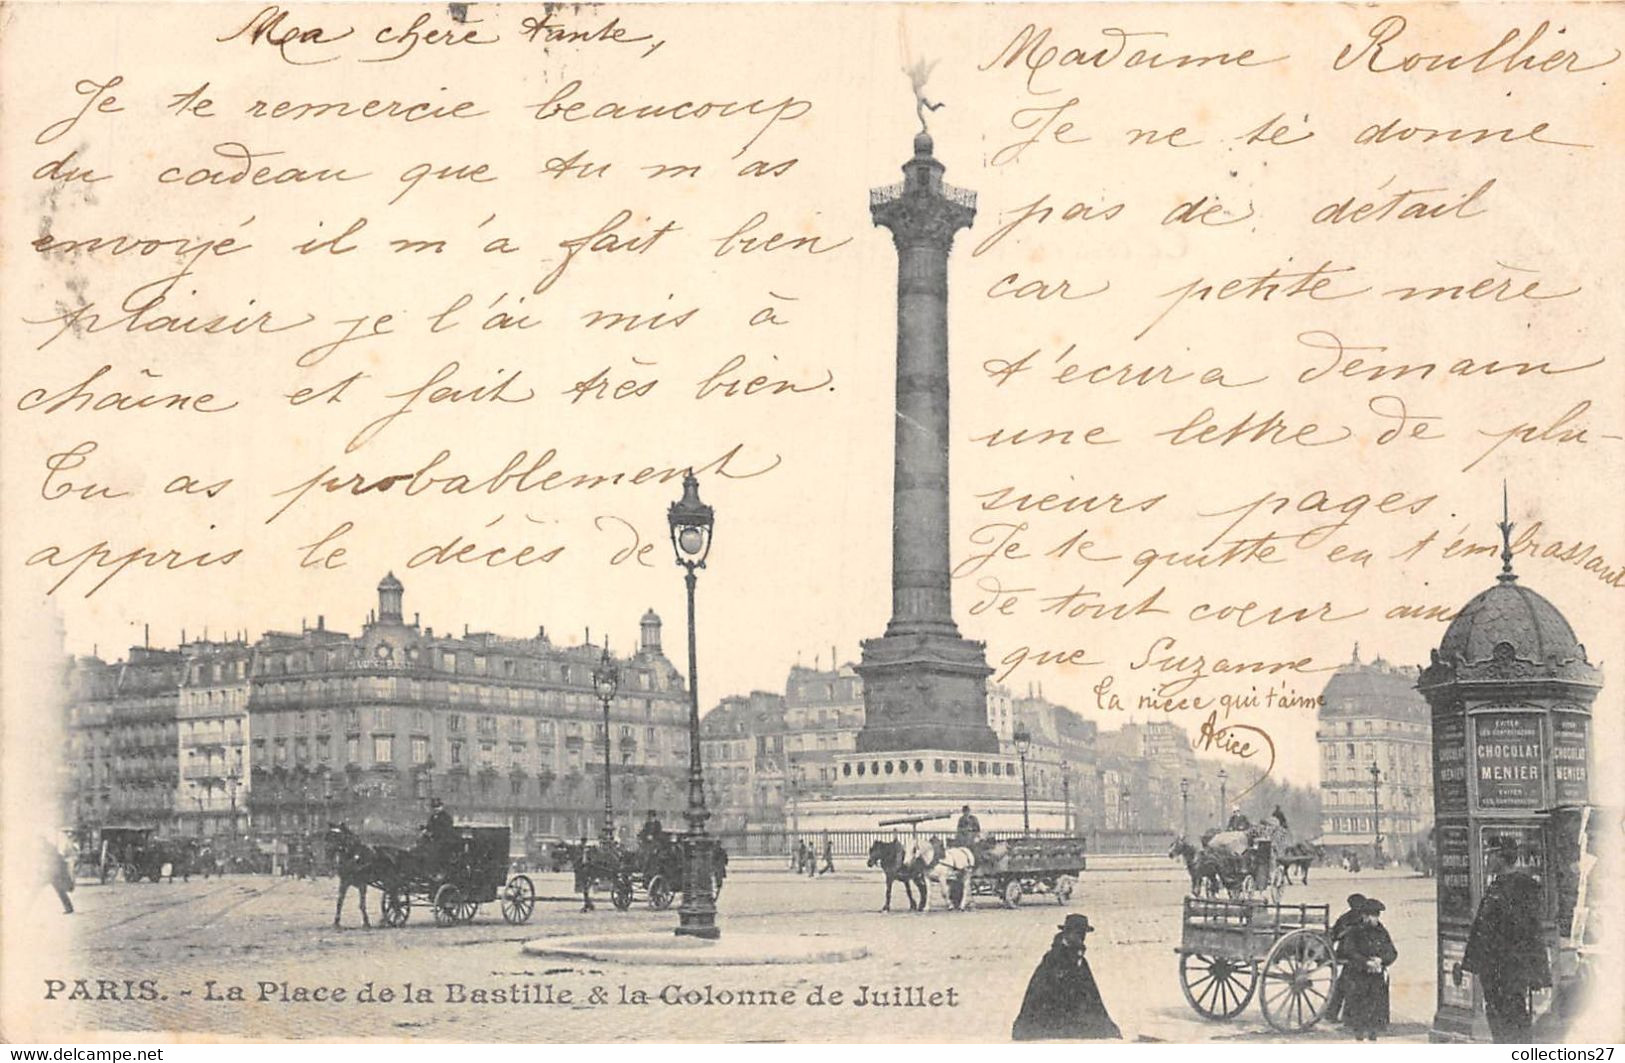 Ma chère tante,
Je te remercie beaucoup
du cadeau que tu m'as
envoyé il m'a fait bien
plaisir je l'ai mis à
chaîne et fait très bien.
Tu as probablement
appris le décès de
Madame Roullier.
Je ne te donne
pas de détail
car petite mère
t'écrira demain
une lettre de plu-
sieurs pages.
Je te quitte en t'embrassant
de tout coeur ain
que Suzanne
Ta niece qui t'aime
Alice
CHOCOLAT
MENIER
EVITER
LES CONTREFAÇONS
PARIS. - La Place de la Bastille & la Colonne de Juillet
https://www.delcampe.net
collections27